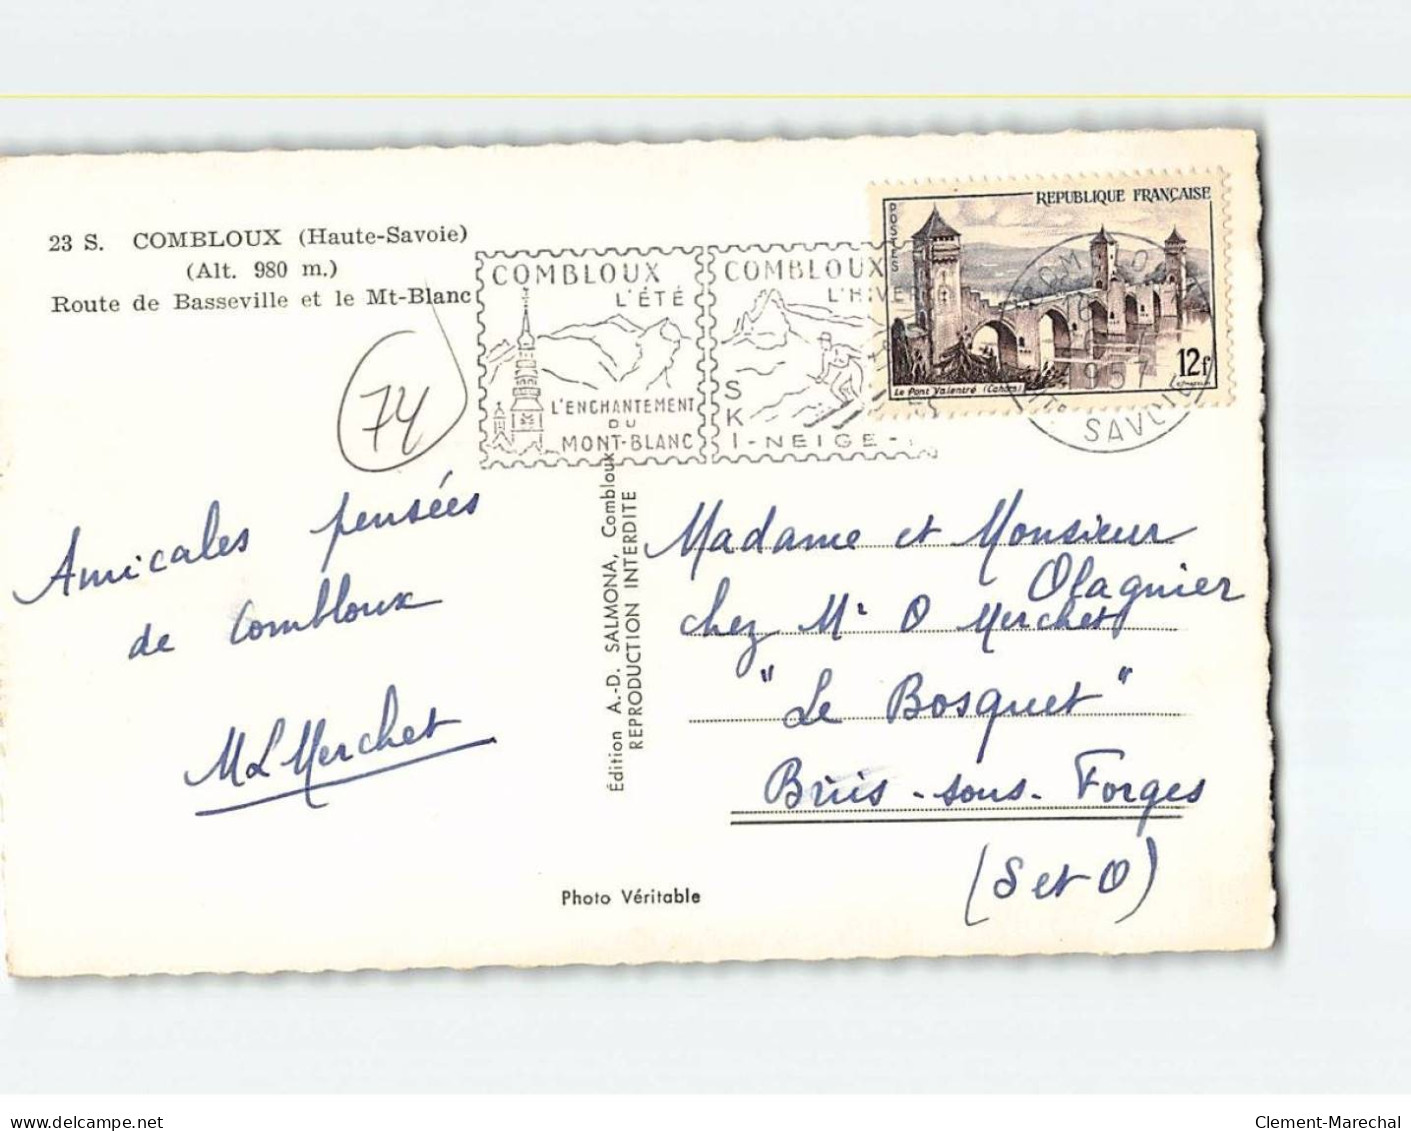 23 S. COMBLOUX (Haute-Savoie)
(Alt. 980 m.)
Route de Basseville et le Mt-Blanc
74
COMBLOUX
L'ÉTÉ
L'ENCHANTEMENT
DU
MONT-BLANC
COMBLOUX
L'HIVER
SKI-NEIGE-
REPUBLIQUE FRANÇAISE
POSTES
12f
Le Pont Valentré (Cahors)
1957
SAVOIE
Amicales pensées
de Combloux
ML Merchet
Édition A.-D. SALMONA, Combloux
REPRODUCTION INTERDITE
Madame et Monsieur
Olagnier
chez Mr O Merchet
"Le Bosquet"
Briis-sous-Forges
(S et O)
Photo Véritable
delcampe.net
Clement-Marechal